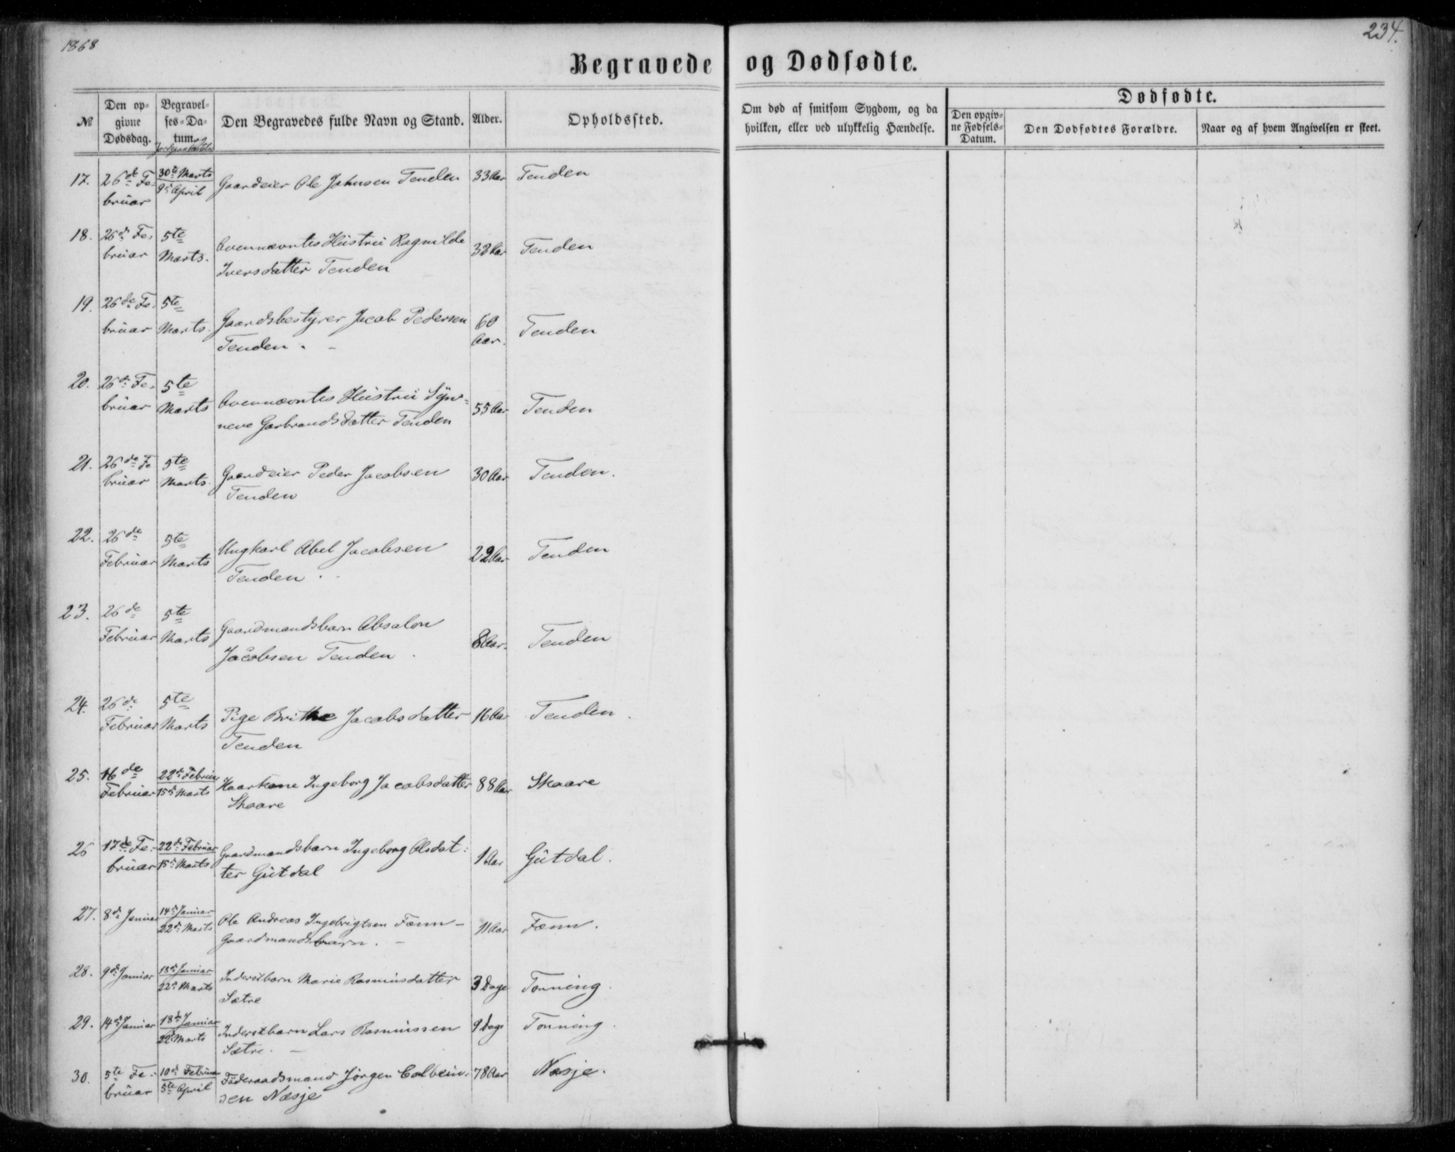 1868
234.
Begravede og Dødfødte.
№
Den opgivne Dødsdag.
Begravelses-Datum.
Den Begravedes fulde Navn og Stand.
Alder.
Opholdssted.
Om død af smitsom Sygdom, og da hvilken, eller ved ulykkelig Hændelse.
Dødfødte.
Den opgivne Fødsels-Datum.
Den Dødfødtes Forældre.
Naar og af hvem Angivelsen er skeet.
17. 26de Fe- 30te Marts Gaardeier Ole Johnsen Tenden 33 Aar Tenden
bruar 9de April
18. 26de Fe- 5te Ovennævntes Hustru Ragnilde 32 Aar Tenden
bruar Marts. Iversdatter Tenden
19. 26de Fe- 5te Gaardsbestyrer Jacob Pedersen 60 Tenden
bruar Marts. Tenden. Aar.
20. 26de Fe- 5te Ovennævntes Hustru Syn- 55 Aar Tenden
bruar Marts neve Garbrandsdatter Tenden
21. 26de Fe 5te Gaardeier Peder Jacobsen 30 Aar Tenden.
bruar Marts. Tenden
22. 26de 5te Ungkarl Abel Jacobsen 22 Aar Tenden
Februar Marts Tenden
23. 26de 5te Gaardmandsbarn Absalon 8 Aar. Tenden
Februar Marts Jacobsen Tenden.
24. 26de 5te Pige Brithe Jacobsdatter 16 Aar Tenden.
Februar Marts Tenden
25. 16de 22de Februar Kaarkone Ingeborg Jacobsdatter 88 Aar Skaare
Februar 15de Marts Skaare
26 17de Fe- 22de Februar Gaardmandsbarn Ingeborg Olsdat- 1 Aar Gutdal.
bruar 15de Marts ter Gutdal
27. 8de Januar 14de Januar Ole Andreas Ingebrigtsen Fænn - 11 Aar Fænn.
22de Marts Gaardmandsbarn. -
28. 9de Januar 18de Januar Inderstbarn Marie Rasmusdatter 3 Dage Tonning.
22de Marts Sætre
29. 14de Januar 18de Januar Inderstbarn Lars Rasmussen 9 Dage Tonning.
22de Marts Sætre. -
30. 5te Fe- 10de Februar Føderaadsmand Jørgen 78 Aar Næsje.
bruar 5te April sen Næsje